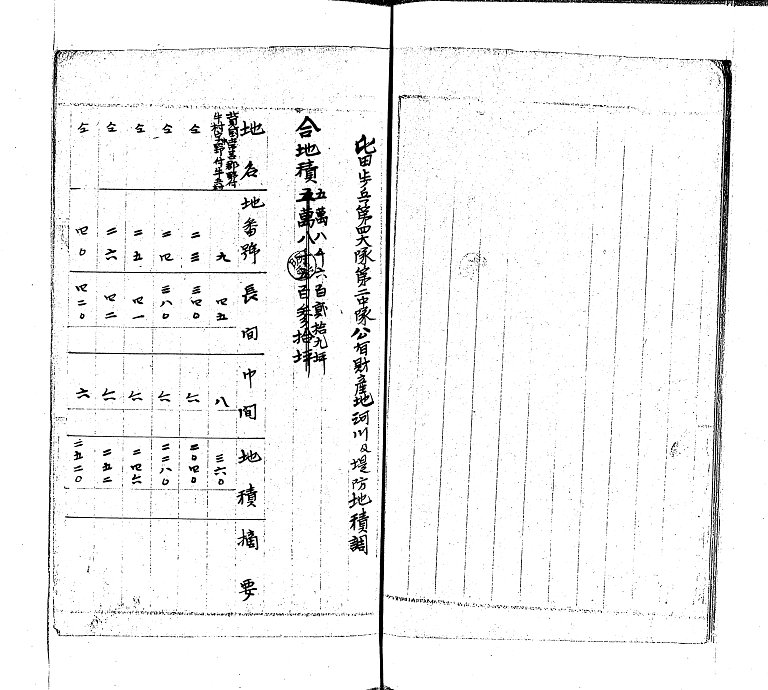 屯田歩兵第四大隊第二中隊公有財産地河川及堤防地積調
五萬八千六百貳拾九坪
合地積五萬八千五百参拾坪
地名 地番號 長間 巾間 地積 摘要
九 四五 八 三六〇
仝 二三 三四〇 六 二〇四〇
仝 二四 三八〇 六 二二八〇
仝 二五 四一 六 二四六
仝 二六 四二 六 二五二
仝 四〇 四二〇 六 二五二〇